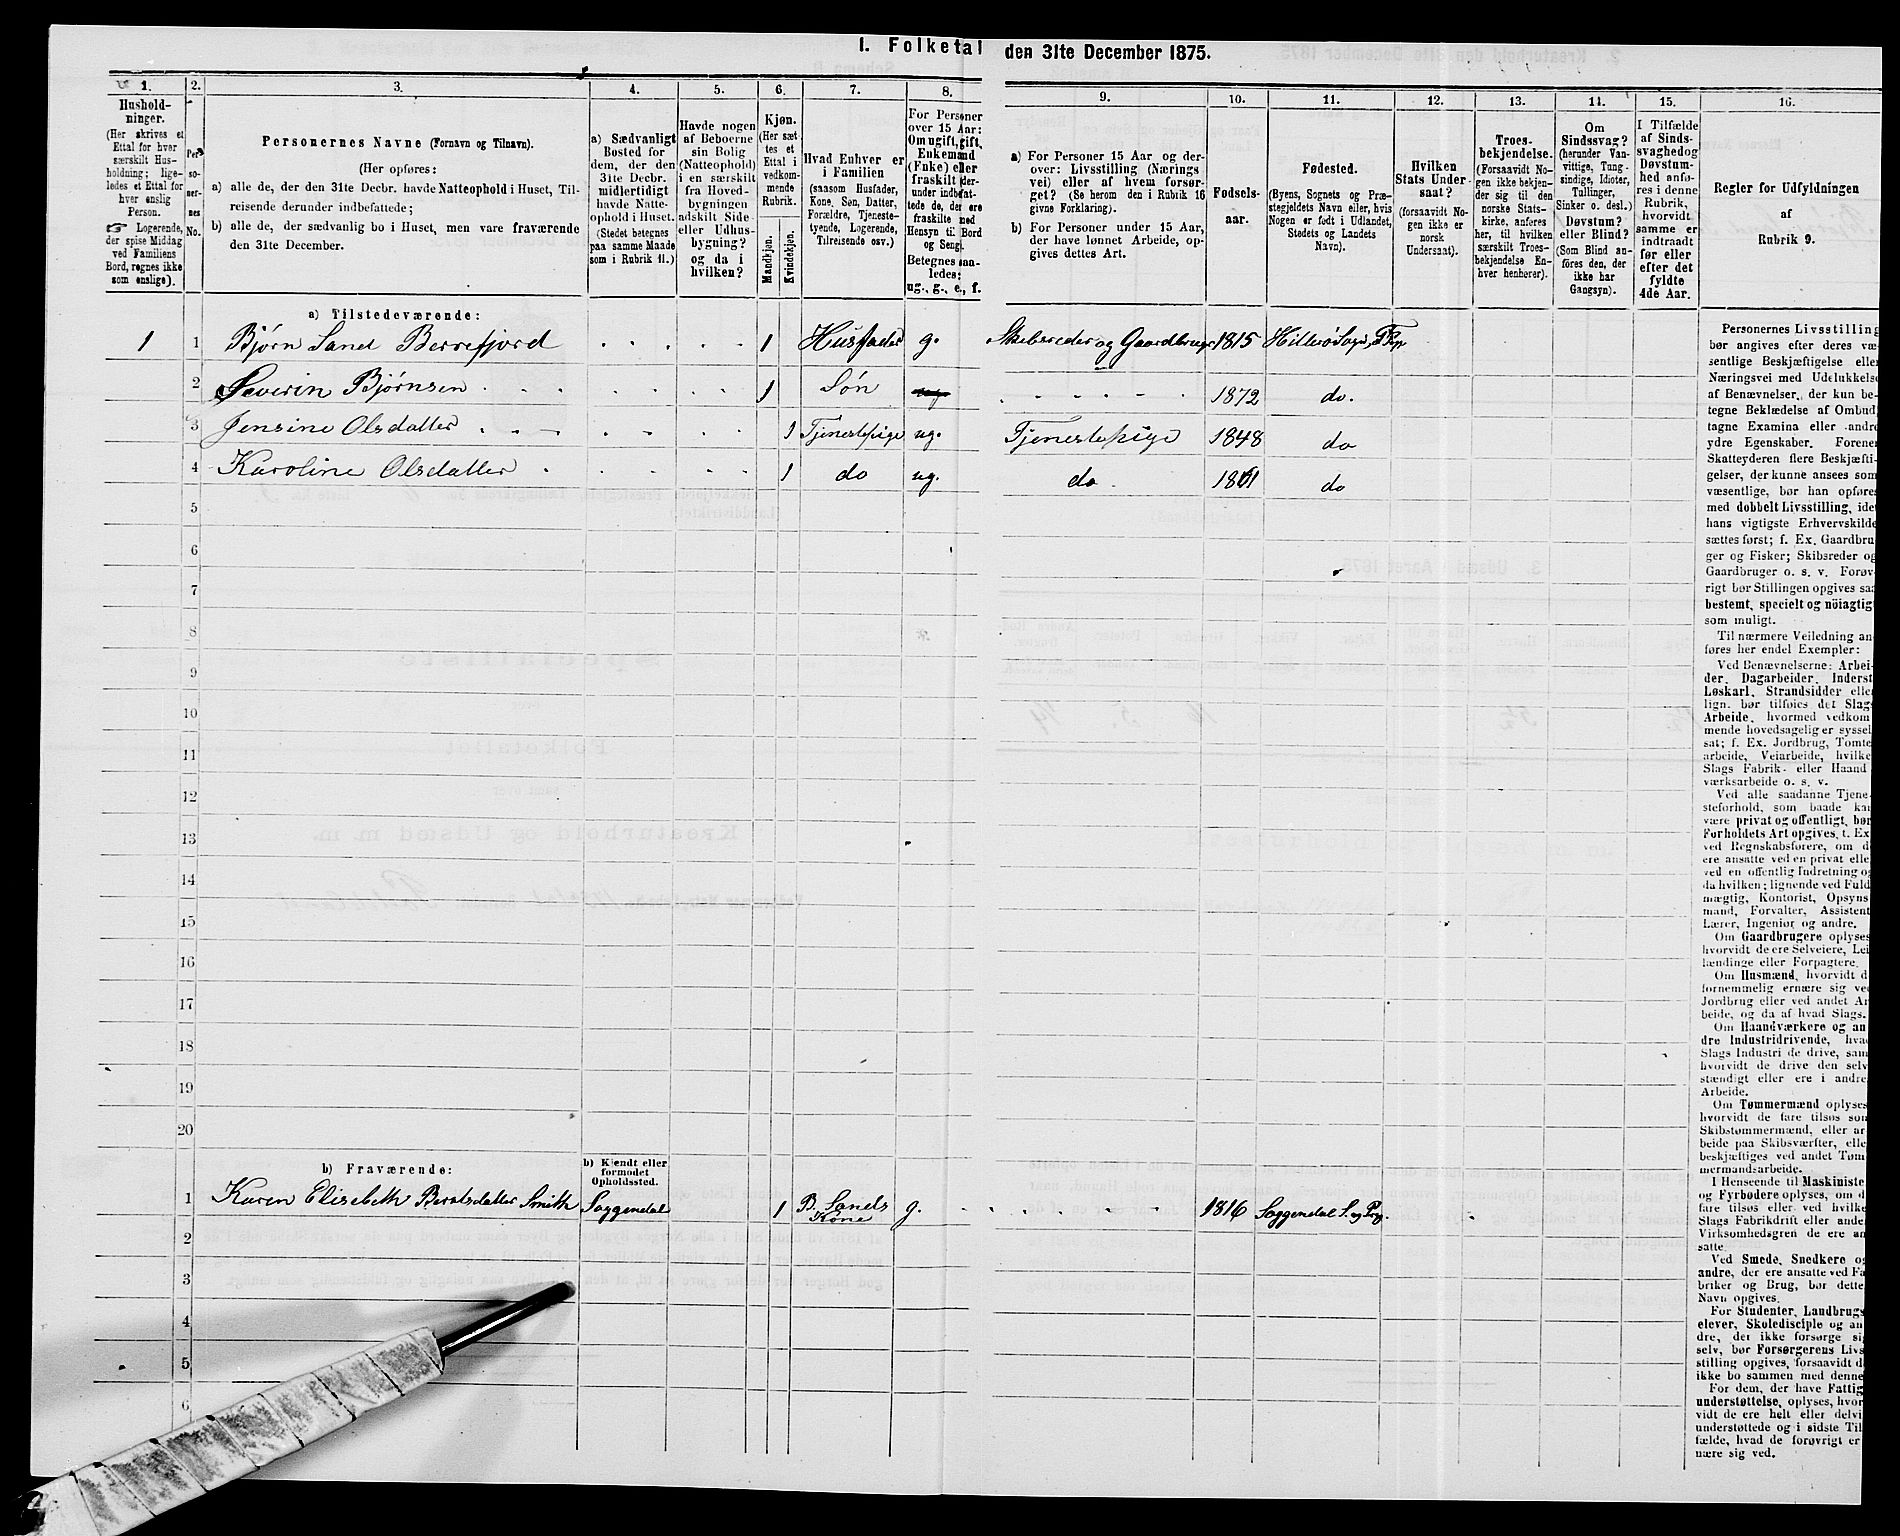 1. Folketal den 31te December 1875.
1. 2. 3. 4. 5. 6. 7. 8. 9. 10. 11. 12. 13. 14. 15. 16.
Hushold-
ninger.
(Her skrives et
Ettal for hver
særskilt Hus-
holdning; lige-
ledes et Ettal for
hver enslig
Person.
☞ Logerende,
der spise Middag
ved Familiens
Bord, regnes ikke
som enslige).
Per-
so-
ner-
nes
No.
Personernes Navne (Fornavn og Tilnavn).
(Her opføres:
a) alle de, der den 31te Decbr. havde Natteophold i Huset, Til-
reisende derunder indbefattede;
b) alle de, der sædvanlig bo i Huset, men vare fraværende
den 31te December.
a) Sædvanligt
Bosted for
dem, der den
31te Decbr.
midlertidigt
havde Natte-
ophold i Huset.
(Stedet betegnes
paa samme Maade
som i Rubrik 11.)
Havde nogen
af Beboerne
sin Bolig
(Natteophold)
i en særskilt
fra Hoved-
bygningen
adskilt Side-
eller Udhus-
bygning?
og da i
hvilken?
Kjøn.
(Her sæt-
tes et
Ettal i
vedkom-
mende
Rubrik.
Mandkjøn.
Kvindekjøn.
Hvad Enhver er
i Familien
(saasom Husfader,
Kone, Søn, Datter,
Forældre, Tjeneste-
tyende, Logerende,
Tilreisende osv.)
For Personer
over 15 Aar:
Om ugift, gift,
Enkemand
(Enke) eller
fraskilt (der-
under indbefat-
tede de, der ere
fraskilte med
Hensyn til Bord
og Seng).
Betegnes saa-
ledes:
ug., g., e., f.
a) For Personer 15 Aar og der-
over: Livsstilling (Nærings
vei) eller af hvem forsør-
get? (Se herom den i Rubrik 16
givne Forklaring).
b) For Personer under 15 Aar,
der have lønnet Arbeide, op-
gives dettes Art.
Fødsels-
aar.
Fødested.
(Byens, Sognets og Præ-
stegjeldets Navn eller, hvis
Nogen er født i Udlandet,
Stedets og Landets
Navn).
Hvilken
Stats Under-
saat?
(forsaavidt No-
gen ikke er
norsk
Undersaat).
Troes-
bekjendelse.
(Forsaavidt No-
gen ikke bekjen-
der sig til den
norske Stats-
kirke, anføres
her, til hvilken
særskilt Troes-
bekjendelse En-
hver henhører).
Om
Sindssvag?
(herunder Van-
vittige, Tung-
sindige, Idioter,
Tullinger,
Sinker o. desl.)
Døvstum?
eller Blind?
(Som Blind an-
føres den, der
ikke har
Gangsyn).
I Tilfælde
af Sinds-
svaghed og
Døvstum-
hed anfø-
res i denne
Rubrik,
hvorvidt
samme er
indtraadt
før eller
efter det
fyldte
4de Aar.
Regler for Udfyldningen
af
Rubrik 9.
a) Tilstedeværende:
1 1 Bjørn Sand Berrefjord 1 Husfader g. Skibsreder og Gaardbruger 1815 Hitterø Sogn, Pr
2 Severin Bjørnsen 1 Søn 1872 do.
3 Jensine Olsdatter 1 Tjenestepige ug. Tjenestepige 1848 do
4 Karoline Olsdatter 1 do ug. do. 1861 do
5
6
7
8
9
10
11
12
13
14
15
16
17
18
19
20
b) Fraværende:
b) Kjendt eller
formodet
Opholdssted.
1 Karen Elisabeth Berntsdatter Smith Soggendal 1 B. Sands Kone g. 1816 Soggendal S. og Prg.
2
3
4
5
6
Personernes Livsstilling
bør angives efter deres væ-
sentlige Beskjæftigelse eller
Næringsvei med Udelukkelse
af Benævnelser, der kun be-
tegne Beklædelse af Ombud,
tagne Examina eller andre
ydre Egenskaber. Forener
Skatteyderen flere Beskjæfti-
gelser, der kunne ansees som
væsentlige, bør han opføres
med dobbelt Livsstilling, idet
hans vigtigste Erhvervskilde
sættes først; f. Ex. Gaardbru-
ger og Fisker; Skibsreder og
Gaardbruger o. s. v. Forøv-
rigt bør Stillingen opgives saa
bestemt, specielt og nöiagtigt
som muligt.
Til nærmere Veiledning an-
føres her endel Exempler:
Ved Benævnelserne: Arbei-
der, Dagarbeider, Inderst,
Løskarl, Strandsidder eller
lign. bør tilføies det Slags
Arbeide, hvormed vedkom-
mende hovedsagelig er syssel-
sat; f. Ex. Jordbrug, Tomte-
arbeide, Veiarbeide, hvilket
Slags Fabrik- eller Haand-
værksarbeide o. s. v.
Ved alle saadanne Tjene-
steforhold, som baade kan
være privat og offentligt, bør
Forholdets Art opgives, t. Ex.
ved Regnskabsførere, om de
ere ansatte ved en privat eller
ved en offentlig Indretning og
da hvilken; lignende ved Fuld-
mægtig, Kontorist, Opsyns-
mand, Forvalter, Assistent,
Lærer, Ingeniør og andre.
Om Gaardbrugere oplyses,
hvorvidt de ere Selveiere, Lei-
lændinge eller Forpagtere.
Om Husmænd, hvorvidt de
fornemmelig ernære sig ved
Jordbrug eller ved andet Ar-
beide, og da af hvad Slags.
Om Haandværkere og an-
dre Industridrivende, hvad
Slags Industri de drive, samt
hvorvidt de drive den selv-
stændigt eller ere i andres
Arbeide.
Om Tømmermænd oplyses,
hvorvidt de fare tilsøs som
Skibstømmermænd, eller ar-
beide paa Skibsværfter, eller
beskjæftiges ved andet Tøm-
mermandsarbeide.
I Henseende til Maskinister
og Fyrbødere oplyses, om de
fare tilsøs eller ved hvilken
Slags Fabrikdrift eller anden
Virksomhedsgren de ere an-
satte.
Ved Smede, Snedkere og
andre, der ere ansatte ved Fa-
briker og Brug, bør dettes
Navn opgives.
For Studenter, Landbrugs-
elever, Skoledisciple og an-
dre, der ikke forsørge sig
selv, bør Forsørgerens Livs-
stilling opgives, forsaavidt de
ikke bo sammen med denne.
For dem, der have Fattig-
understøttelse, oplyses, hvor-
vidt de ere helt eller delvis
understøttede og i sidste Til-
fælde, hvad de forøvrigt er-
nære sig ved.